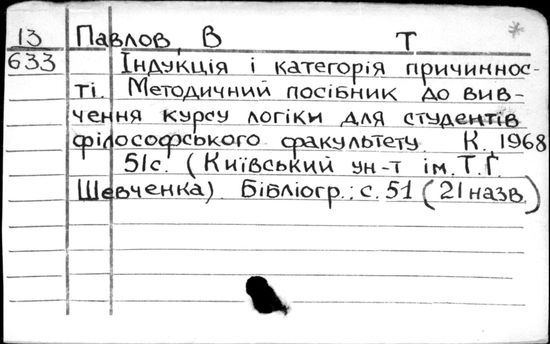 13 Павлов, В Т *
633 Індукція і категорія причиннос-
ті. Методичний посібник до вив-
чення курсу логіки для студентів
філософського факультету. К. 1968
51с. (Київський ун-т ім. Т. Г.
Шевченка). Бібліогр.: с. 51 (21 назв.)